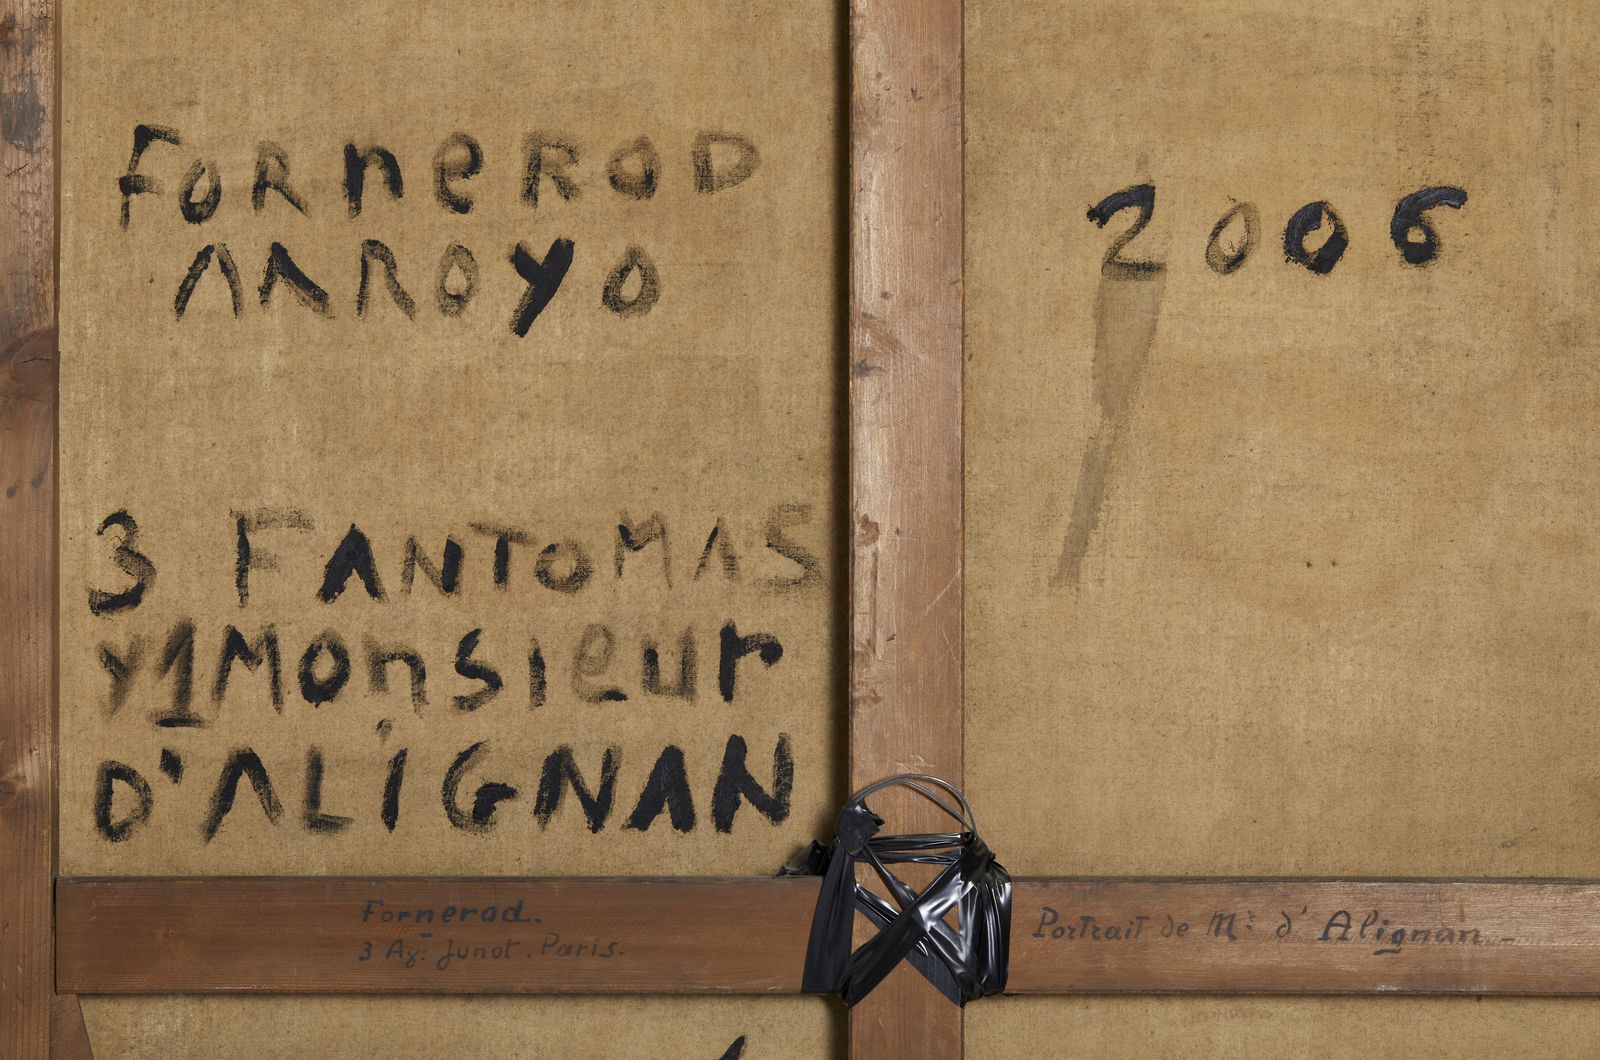 FORneROD
ARROYO
2006
3 FANTOMAS
y 1 Monsieur
D'ALiGNAN
Fornerod..
3 Av: Junot. Paris.
Portrait de Mr: d'Alignan_